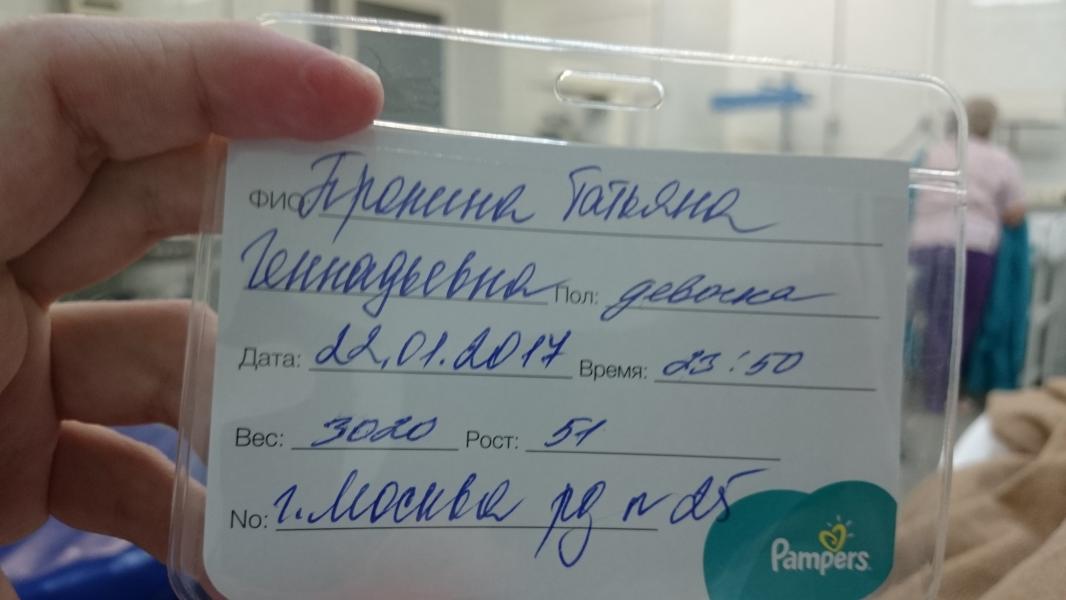 ФИО Пронина Татьяна
Геннадьевна Пол: девочка
Дата: 22.01.2017 Время: 23:50
Вес: 3020 Рост: 51
No: г. Москва рд n 25
Pampers